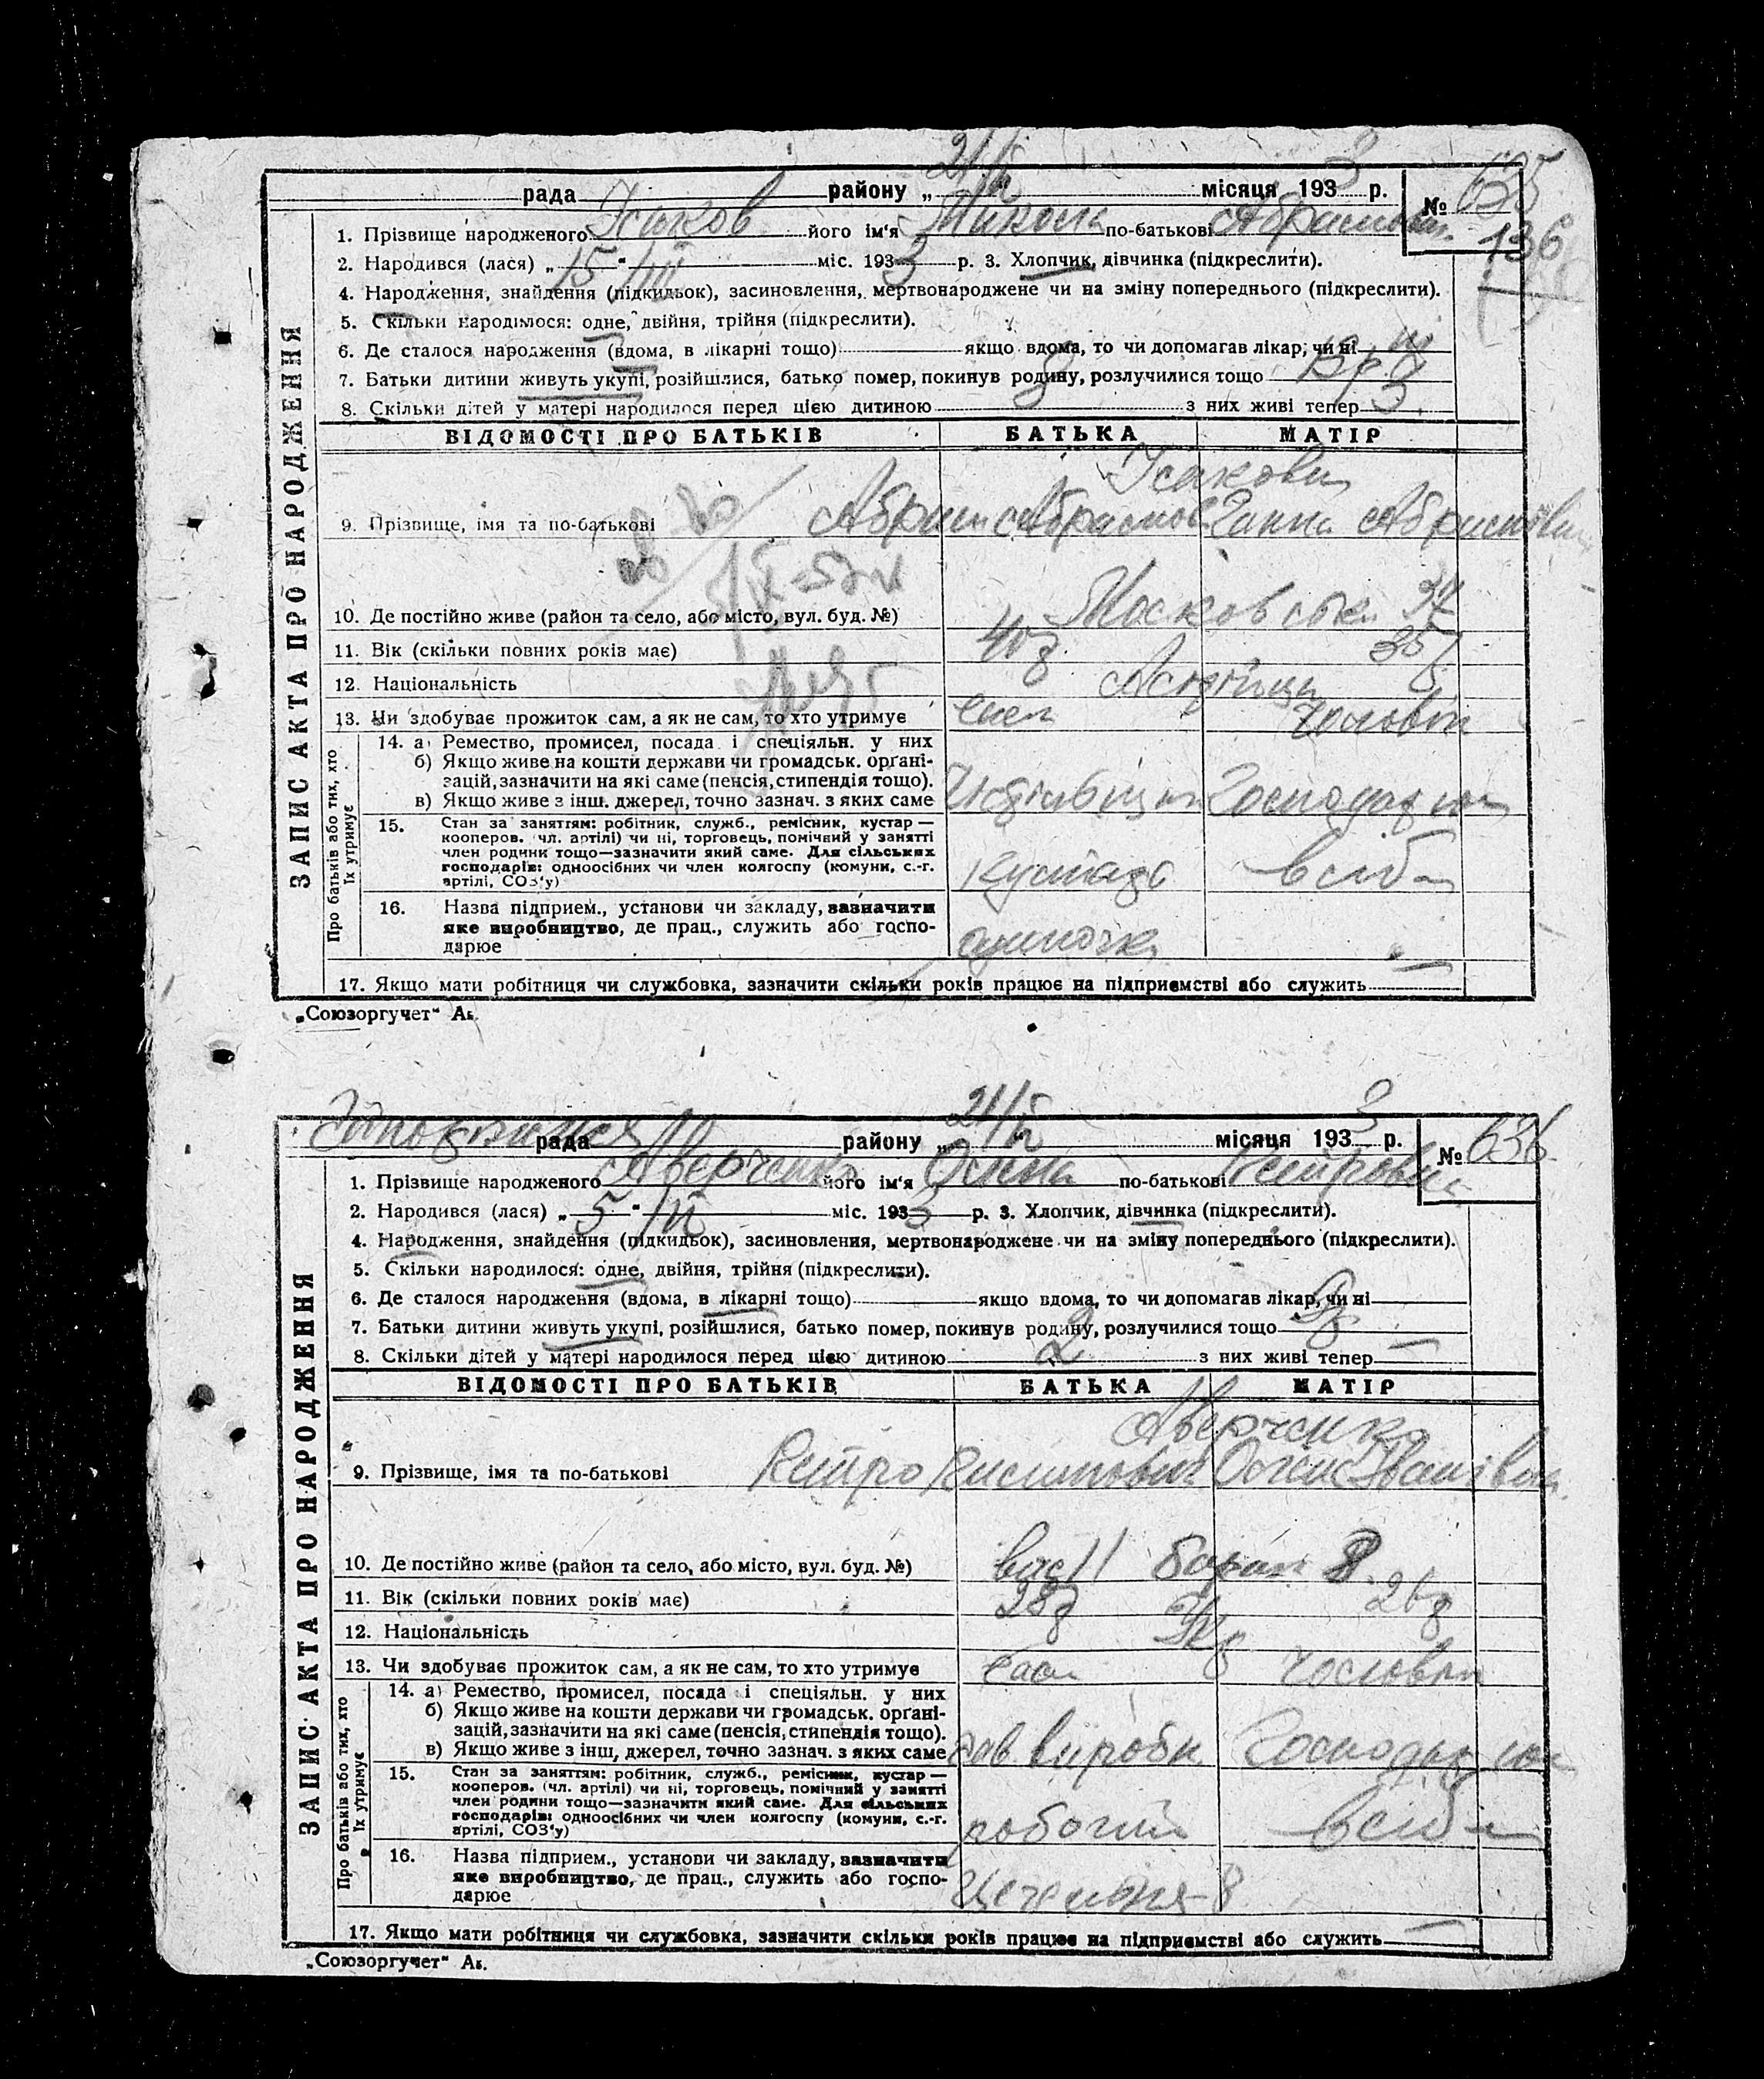 21/V 3
рада району „ “ місяця 193 р. № 635
1. Прізвище народженого Ісаков його ім‘я Микола по-батькові Абрамович 136
2. Народився (лася) „15“ III міс. 1933 р. 3. Хлопчик, дівчинка (підкреслити).
4. Народження, знайдення (підкидьок), засиновлення, мертвонароджене чи на зміну попереднього (підкреслити).
5. Скільки народилося: одне, двійня, трійня (підкреслити).
6. Де сталося народження (вдома, в лікарні тощо) якщо вдома, то чи допомагав лікар, чи ні ні
7. Батьки дитини живуть укупі, розійшлися, батько помер, покинув родину, розлучилися тощо
8. Скільки дітей у матері народилося перед цією дитиною 3 з них живі тепер 3
ЗАПИС АКТА ПРО НАРОДЖЕННЯ
ВІДОМОСТІ ПРО БАТЬКІВ БАТЬКА МАТІР
Ісакови
9. Прізвище, імя та по-батькові Абрам Абрамов. Ганна Абрамівна
10. Де постійно живе (район та село, або місто, вул. буд. №) Московськ. 37
11. Вік (скільки повних років має) 40р. 35р
12. Національність
13. Чи здобуває прожиток сам, а як не сам, то хто утримує сам чоловік
Про батьків або тих, хто їх утримує
14. а) Ремество, промисел, посада і спеціяльн. у них
б) Якщо живе на кошти держави чи громадськ. органі-
зацій, зазначити на які саме (пенсія, стипендія тощо).
в) Якщо живе з інш. джерел, точно зазнач. з яких саме Господарка
15. Стан за заняттям: робітник, служб., ремісник, кустар—
кооперов. (чл. артілі) чи ні, торговець, помічний у занятті
член родини тощо—зазначити який саме. Для сільських
господарів: одноосібних чи член колгоспу (комуни, с.-г.
артілі, СОЗ‘у) кустарь в сім‘ї
16. Назва підприєм., установи чи закладу, зазначити
яке виробництво, де прац., служить або госпо-
дарює одиночка —
17. Якщо мати робітниця чи службовка, зазначити скільки років працює на підприємстві або служить
„Союзоргучет“
21/V 3
рада району „ “ місяця 193 р. № 636
1. Прізвище народженого Аверченко його ім‘я Олена по-батькові Петровна
2. Народився (лася) „5“ IV міс. 1933 р. 3. Хлопчик, дівчинка (підкреслити).
4. Народження, знайдення (підкидьок), засиновлення, мертвонароджене чи на зміну попереднього (підкреслити).
5. Скільки народилося: одне, двійня, трійня (підкреслити).
6. Де сталося народження (вдома, в лікарні тощо) якщо вдома, то чи допомагав лікар, чи ні
7. Батьки дитини живуть укупі, розійшлися, батько помер, покинув родину, розлучилися тощо
8. Скільки дітей у матері народилося перед цією дитиною 2 з них живі тепер —
ЗАПИС АКТА ПРО НАРОДЖЕННЯ
ВІДОМОСТІ ПРО БАТЬКІВ БАТЬКА МАТІР
Аверченко
9. Прізвище, імя та по-батькові Петро Олена Іванівна
10. Де постійно живе (район та село, або місто, вул. буд. №) барак 8
11. Вік (скільки повних років має) 28р 26р
12. Національність Укр
13. Чи здобуває прожиток сам, а як не сам, то хто утримує сам чоловік
Про батьків або тих, хто їх утримує
14. а) Ремество, промисел, посада і спеціяльн. у них
б) Якщо живе на кошти держави чи громадськ. органі-
зацій, зазначити на які саме (пенсія, стипендія тощо).
в) Якщо живе з інш. джерел, точно зазнач. з яких саме зав. виробн Господарка
15. Стан за заняттям: робітник, служб., ремісник, кустар—
кооперов. (чл. артілі) чи ні, торговець, помічний у занятті
член родини тощо—зазначити який саме. Для сільських
господарів: одноосібних чи член колгоспу (комуни, с.-г.
артілі, СОЗ‘у) робочий в сім‘ї
16. Назва підприєм., установи чи закладу, зазначити
яке виробництво, де прац., служить або госпо-
дарює Цегельня-8
17. Якщо мати робітниця чи службовка, зазначити скільки років працює на підприємстві або служить —
„Союзоргучет“